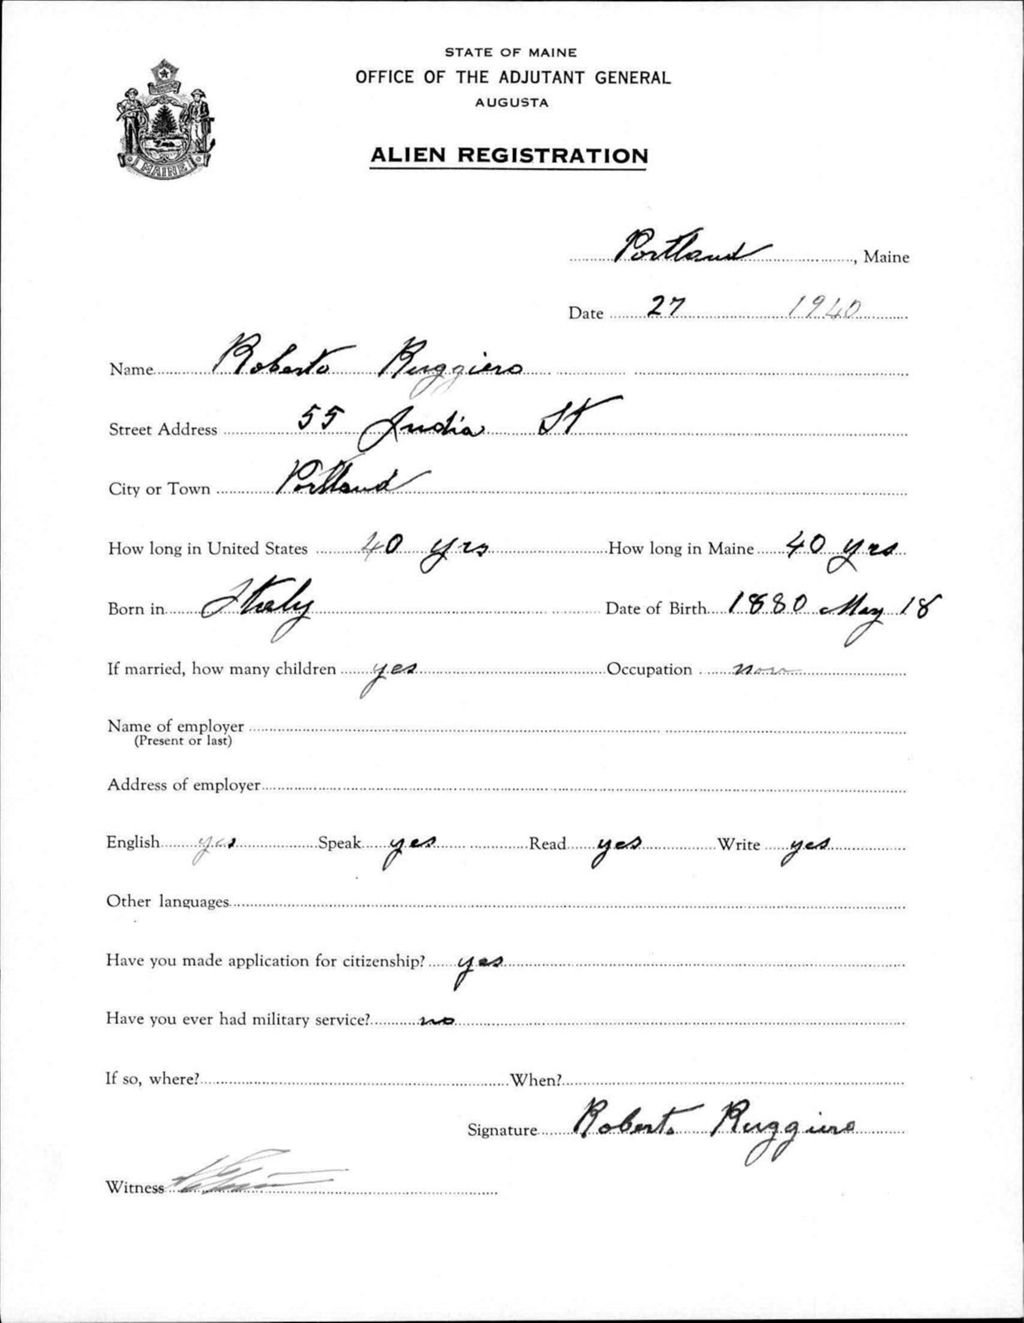 STATE OF MAINE
OFFICE OF THE ADJUTANT GENERAL
AUGUSTA
ALIEN REGISTRATION
MAINE
Portland, Maine
Date 27 1940
Name Roberto Ruggiero
Street Address 55 India St
City or Town Portland
How long in United States 40 yrs How long in Maine 40 yrs
Born in Italy Date of Birth 1880 May 18
If married, how many children yes Occupation
Name of employer
(Present or last)
Address of employer
English yes Speak yes Read yes Write yes
Other languages
Have you made application for citizenship? yes
Have you ever had military service? no
If so, where? When?
Signature Roberto Ruggiero
Witness